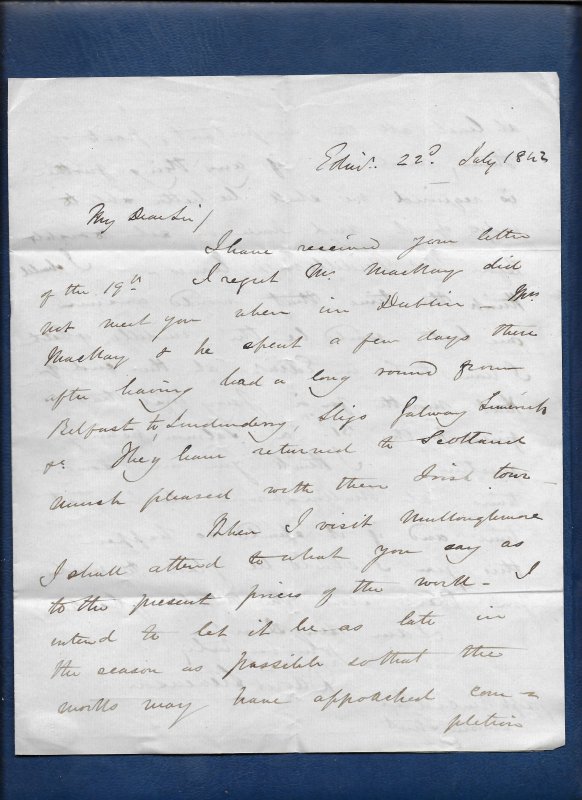 Edinr. 22d. July 1842
My Dear Sir/
I have received your letter
of the 19th. I regret Mr. MacKay did
not meet you when in Dublin - Mrs
MacKay & he spent a few days there
after having had a long round from
Belfast to Londonderry, Sligo Galway Limerick
&c. They have returned to Scotland
much pleased with their Irish tour -
When I visit Mullaghmore
I shall attend to what you say as
to the present prices of the work - I
intend to let it be as late in
the season as possible so that the
works may have approached com -
pletion